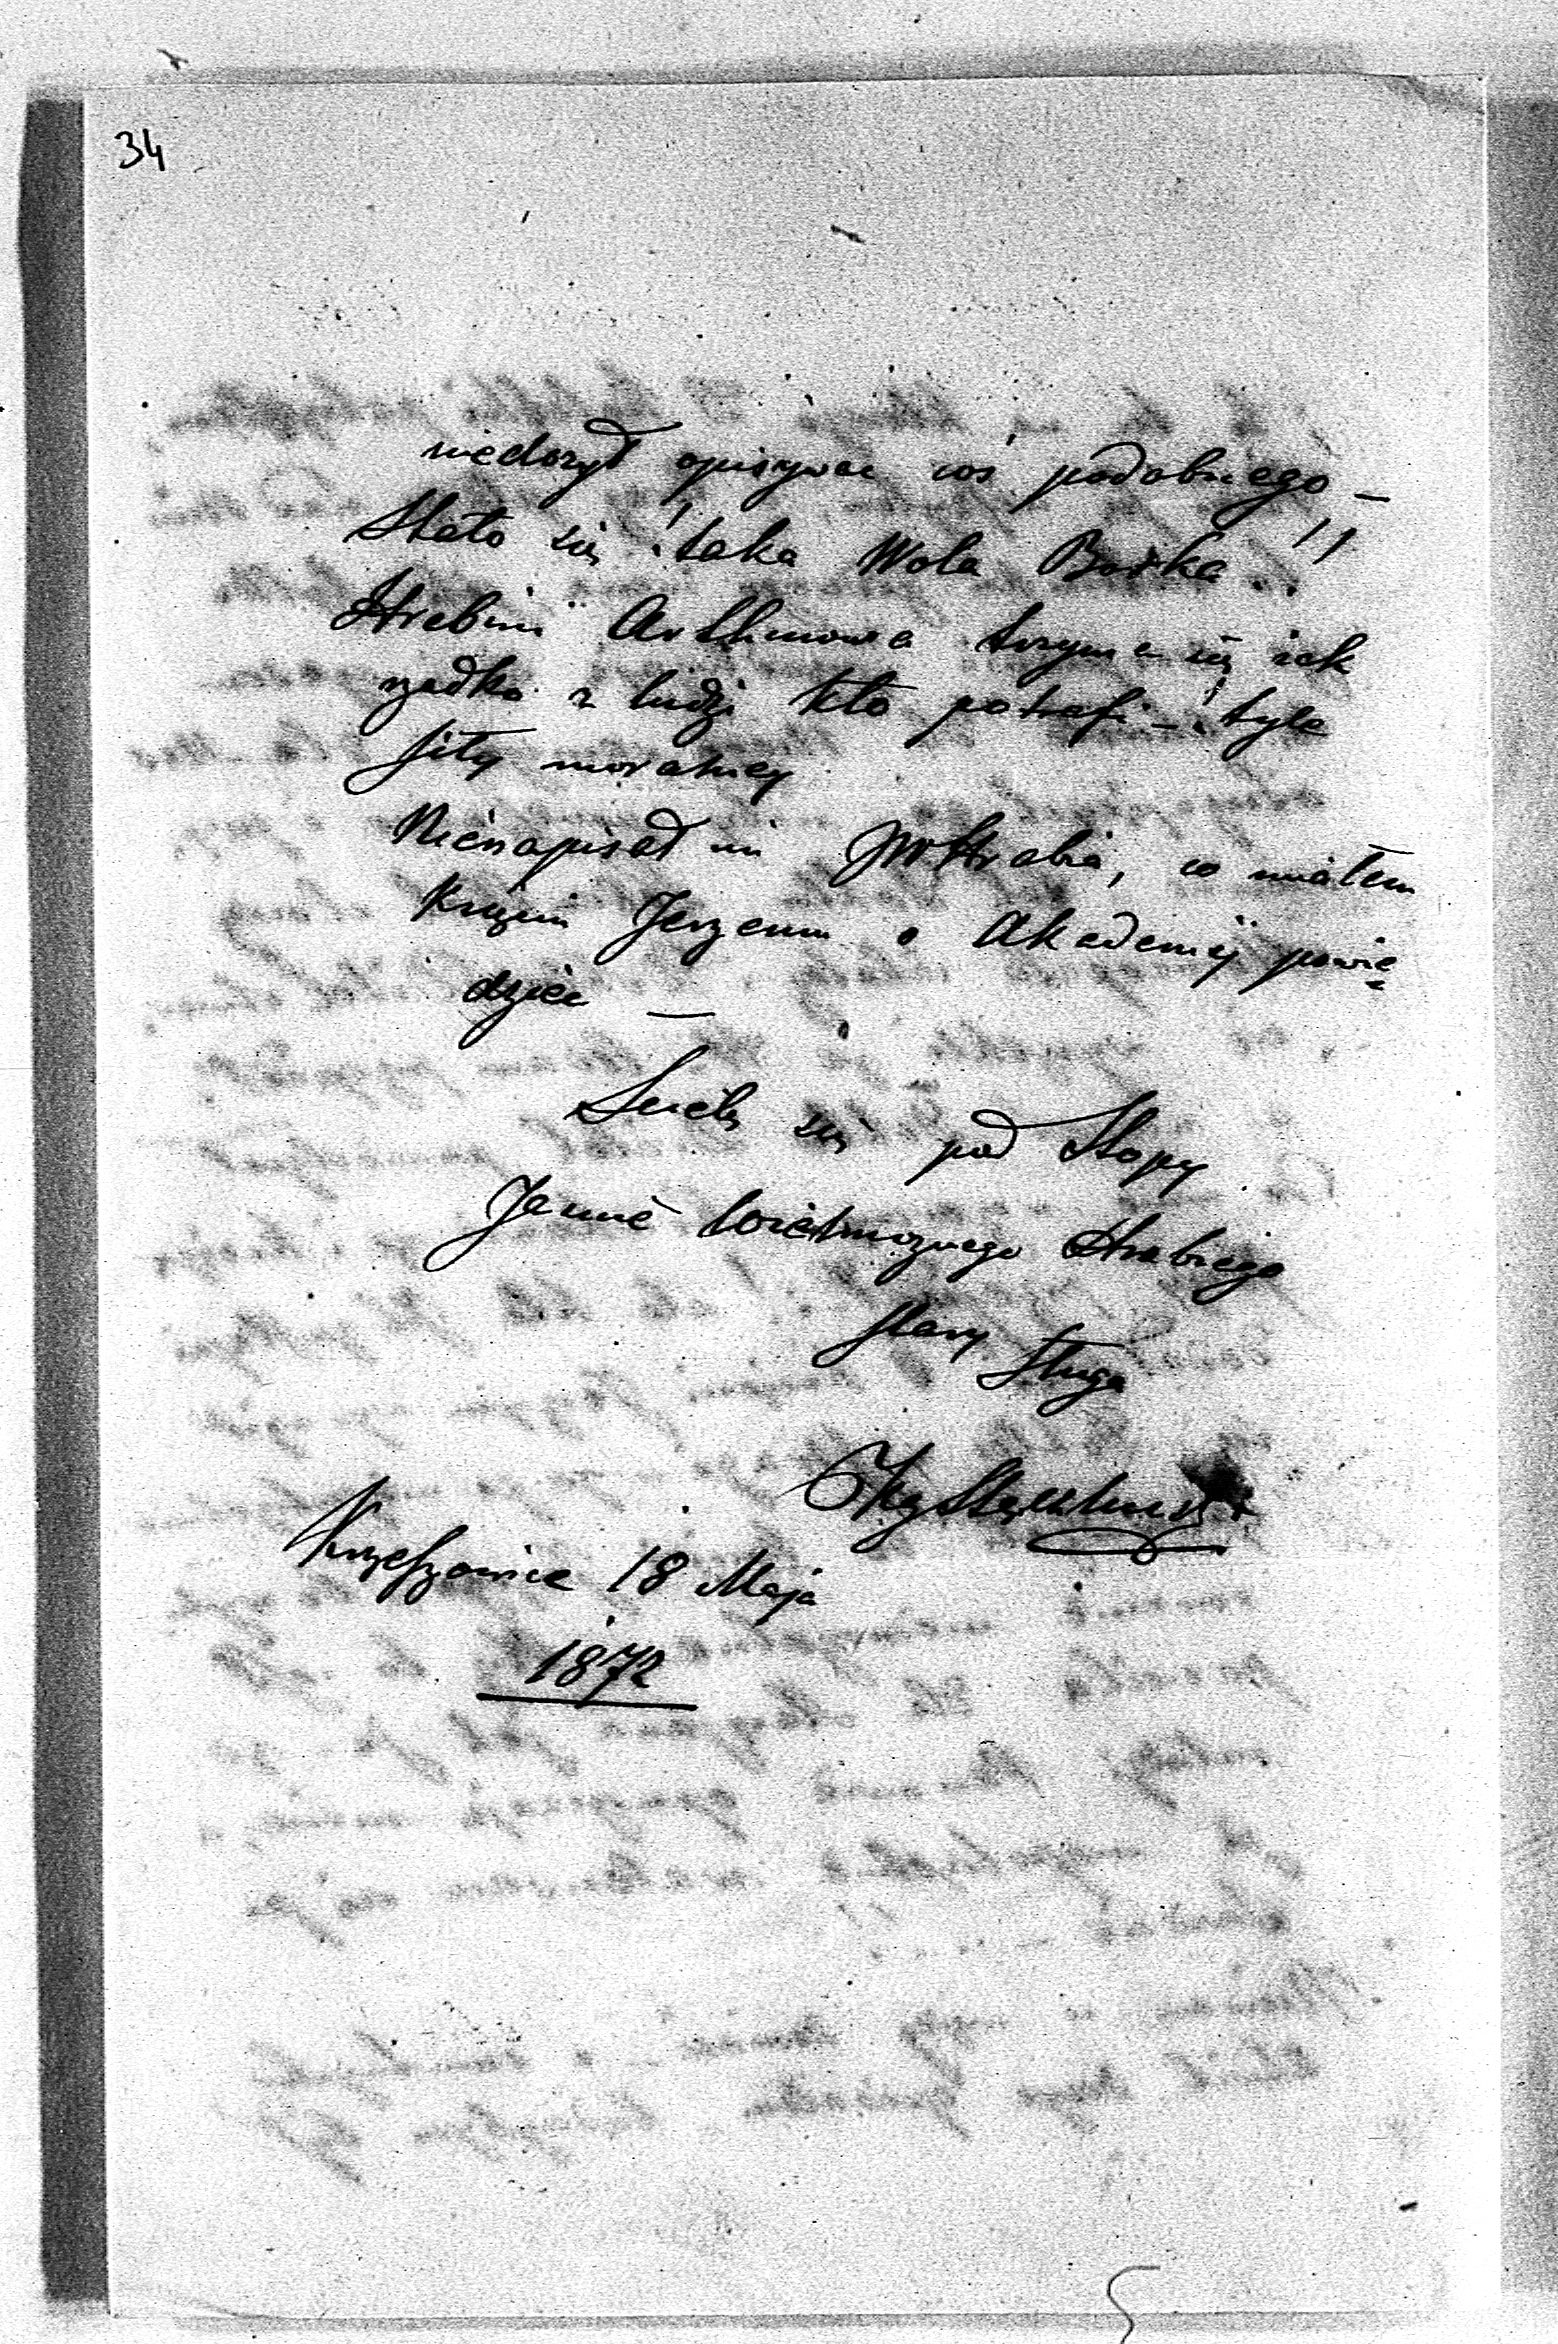 34
niedozył opisywać coś podobnego —
Stało się! taka Wola Boska!!
Hrabini Arthurowa trzyma się jak
rzadko z ludzi kto potrafi — tyle
siły moralney
Nienapisał mi JWHrabia, co miałem
Księciu Jerzemu o Akademij powie
dzieć —
Ścielę się pod Stopy
Jaśnie Wielmożnego Hrabiego
stary Sługa
Krzeszowice 18 Maja
1872